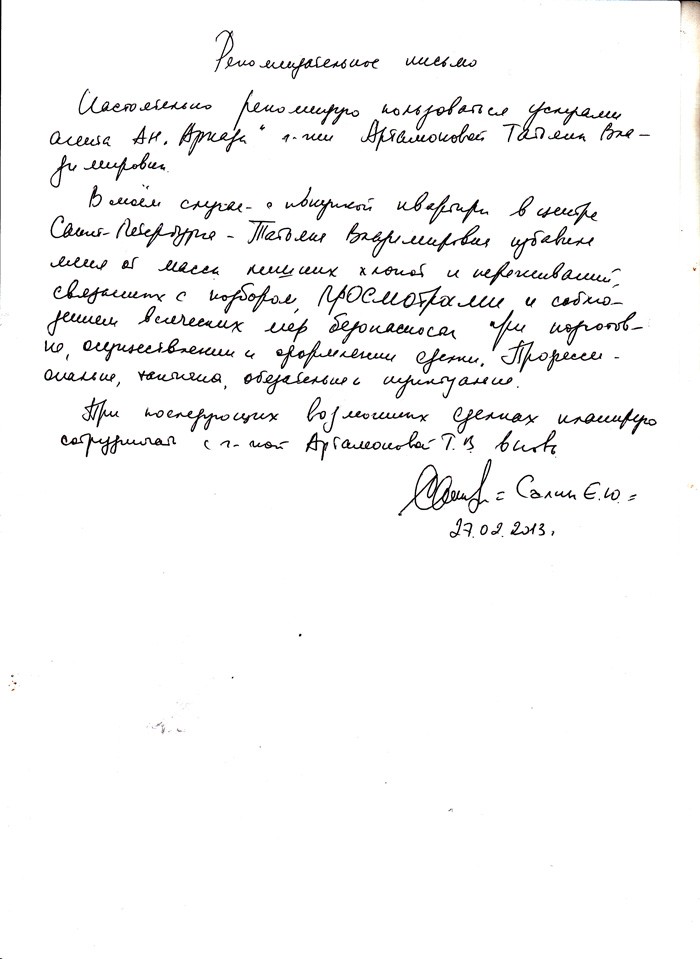 Рекомендательное письмо
Настоятельно рекомендую пользоваться услугами
агента АН "Аркада" г-жи Артамоновой Татьяны Вла-
димировны.
В моём случае - с покупкой квартиры в центре
Санкт-Петербурга - Татьяна Владимировна избавила
меня от массы лишних хлопот и переживаний,
связанных с подбором, ПРОСМОТРАМИ и соблю-
дением всяческих мер безопасности при подготов-
ке, осуществлении и оформлении сделки. Професси-
ональна, тактична, обязательна и пунктуальна.
При последующих возможных сделках планирую
сотрудничать с г-жой Артамоновой Т.В. вновь
= Салин Е.Ю. =
27.02.2013.